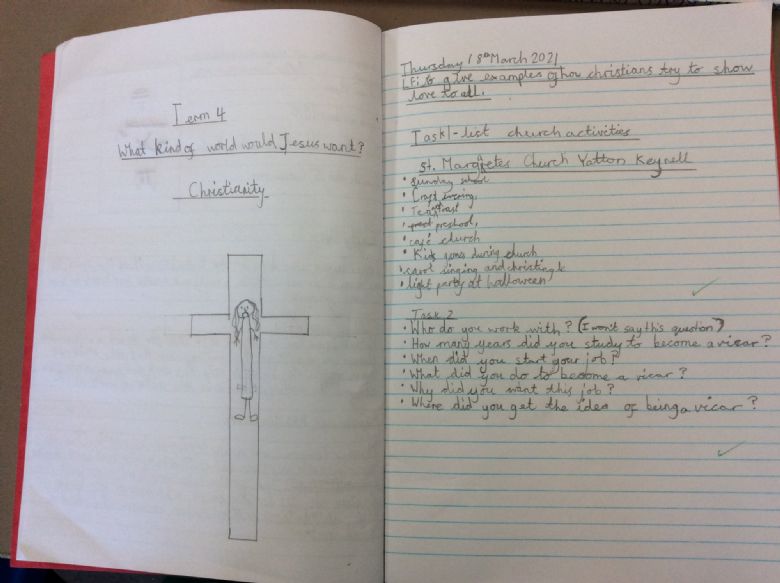 Term 4
What kind of world would Jesus want?
Christianity
Thursday 18th March 2021
LFi to give examples of how christians try to show
love to all.
Task1-list church activities
St. Margretes Church Yatton Keynell
• Sunday
• Craft evening,
• Tea
• preschool,
• café church
• Kids
during church
• carol singing and christingle
• light party at halloween
Task 2
• Who do you work with? (I won't say this question)
• How many years did you study to become a vicar?
• When did you start your job?
• What did you do to become a vicar?
• Why did you want this job?
• Where did you get the idea of being a vicar?